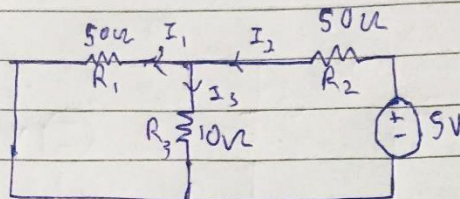 50Ω I₁ I₂ 50Ω
R₁ R₂
I₃
R₃ 10Ω + - 5V